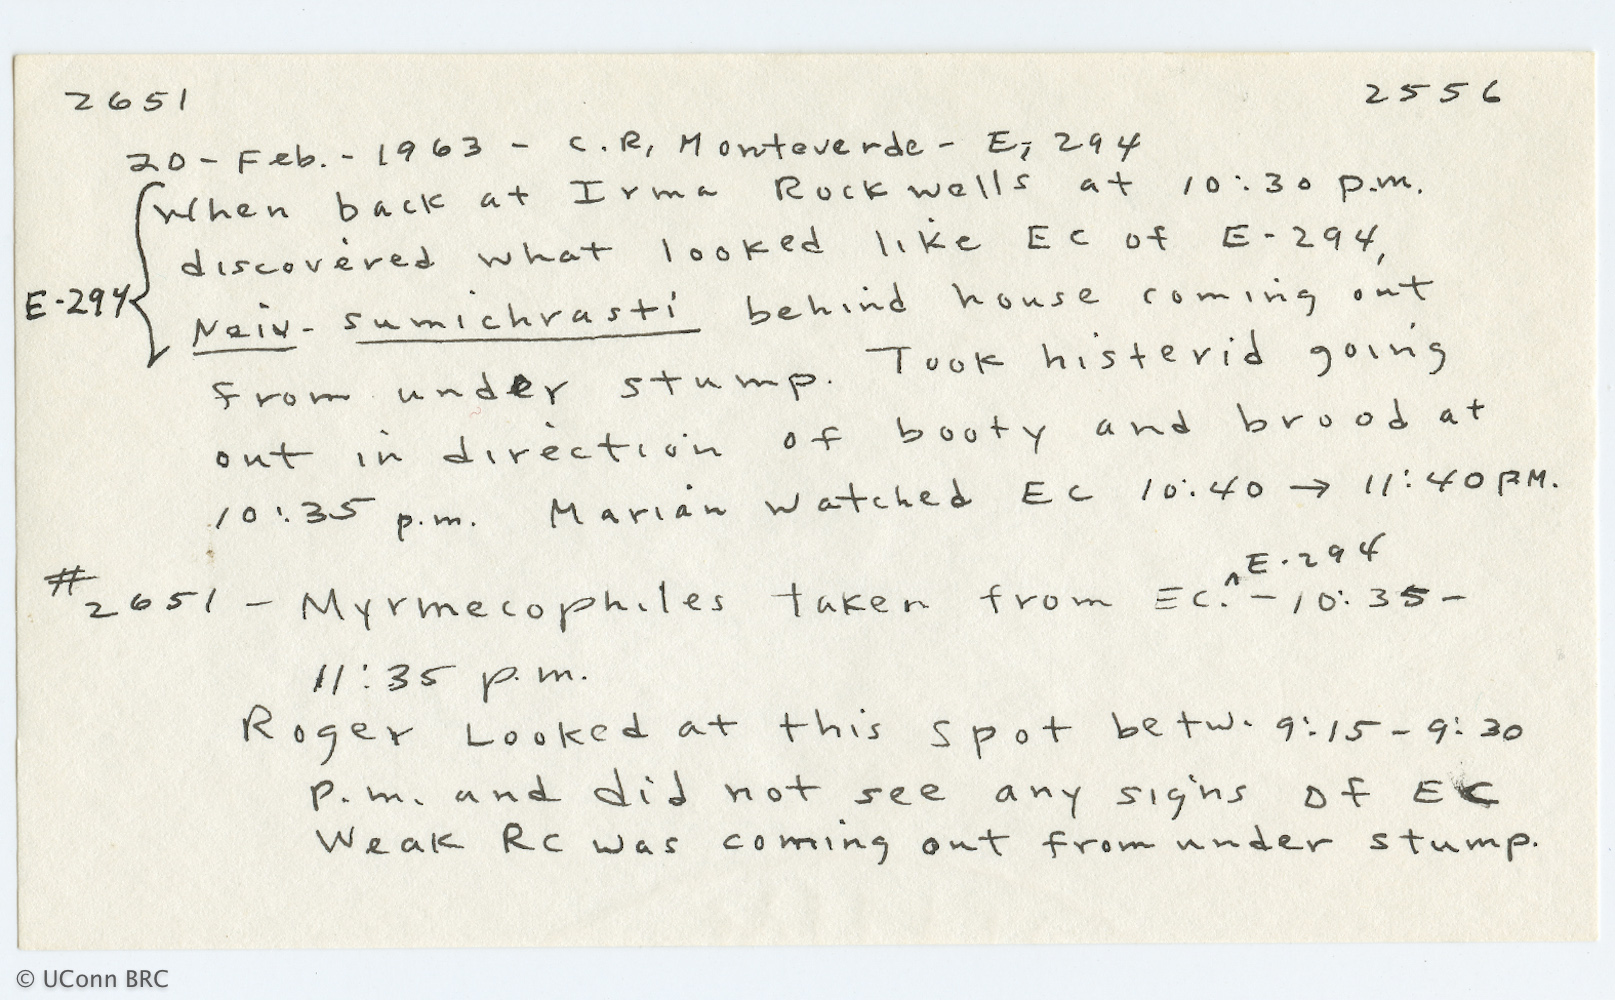 2651 2556
20-Feb.-1963 - C.R, Monteverde- E, 294
When back at Irma Rockwells at 10:30 p.m.
discovered what looked like EC of E-294,
E-294 Neiv. sumichrasti behind house coming out
from under stump. Took histerid going
out in direction of booty and brood at
10:35 p.m. Marian watched EC 10:40 → 11:40 P.M.
#2651 - Myrmecophiles taken from EC. ^E-294 -10:35-
11:35 p.m.
Roger Looked at this spot betw. 9:15-9:30
p.m. and did not see any signs of EC
Weak RC was coming out from under stump.
© UConn BRC